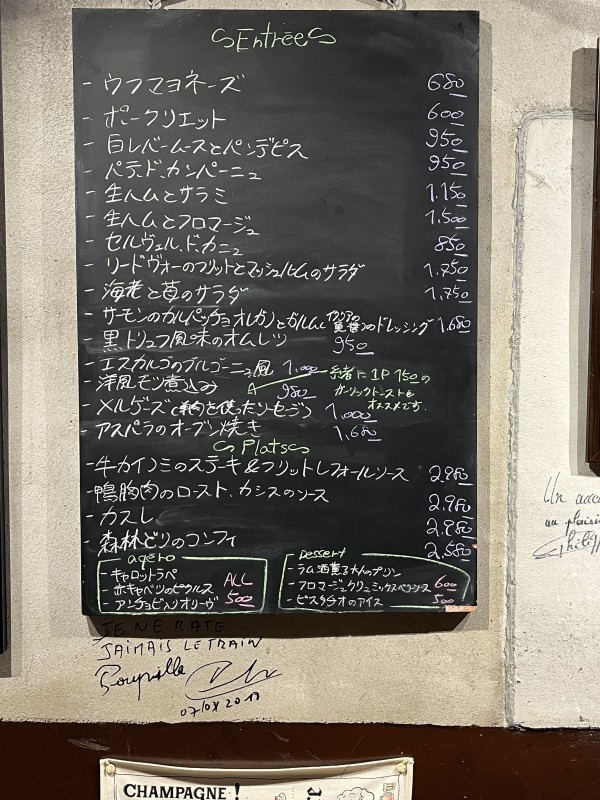 Entrées
- ウフマヨネーズ 680
- ポークリエット 600
- 白レバームースとパンデピス 950
- パテ.ド.カンパーニュ 950
- 生ハムとサラミ 1.150
- 生ハムとフロマージュ 1.500
- セルヴェル.ド.カニュ 850
- リードヴォーのフリットとマッシュルムのサラダ 1.750
- 海老と苺のサラダ 1.750
- サーモンのカルパッチョオレガノとガルム(イタリアの魚醤)のドレッシング 1.680
- 黒トリュフ風味のオムレツ 950
- エスカルゴのブルゴーニュ風 1.000
一緒に1P 150の
ガーリックトーストも
オススメです.
- 洋風モツ煮込み 980
- メルゲーズ(羊肉を使ったソーセージ) 1.000
- アスパラのオーブン焼き 1.680
Plats
- 牛カイノミのステーキ&フリットレフォールソース 2.980
- 鴨胸肉のロースト.カシスのソース 2.980
- カスレ 2.880
- 森林どりのコンフィ 2.580
apéro
- キャロットラペ
- 赤キャベツのピクルス
- アンチョビ入りオリーヴ
ALL
500
Dessert
- ラム酒薫る大人のプリン
- フロマージュクリュミックスベリーソース 600
- ピスタチオのアイス 500
JE NE RATE
JAIMAIS LE TRAIN
07/04 2017
Un acc
au plaisi
CHAMPAGNE!